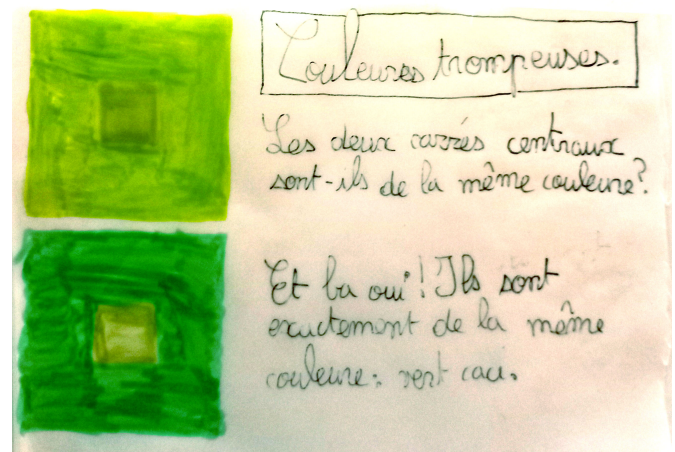 Couleures trompeuses.
Les deux carrés centraux
sont-ils de la même couleure?
Et ba oui! Ils sont
exactement de la même
couleure: vert caci.